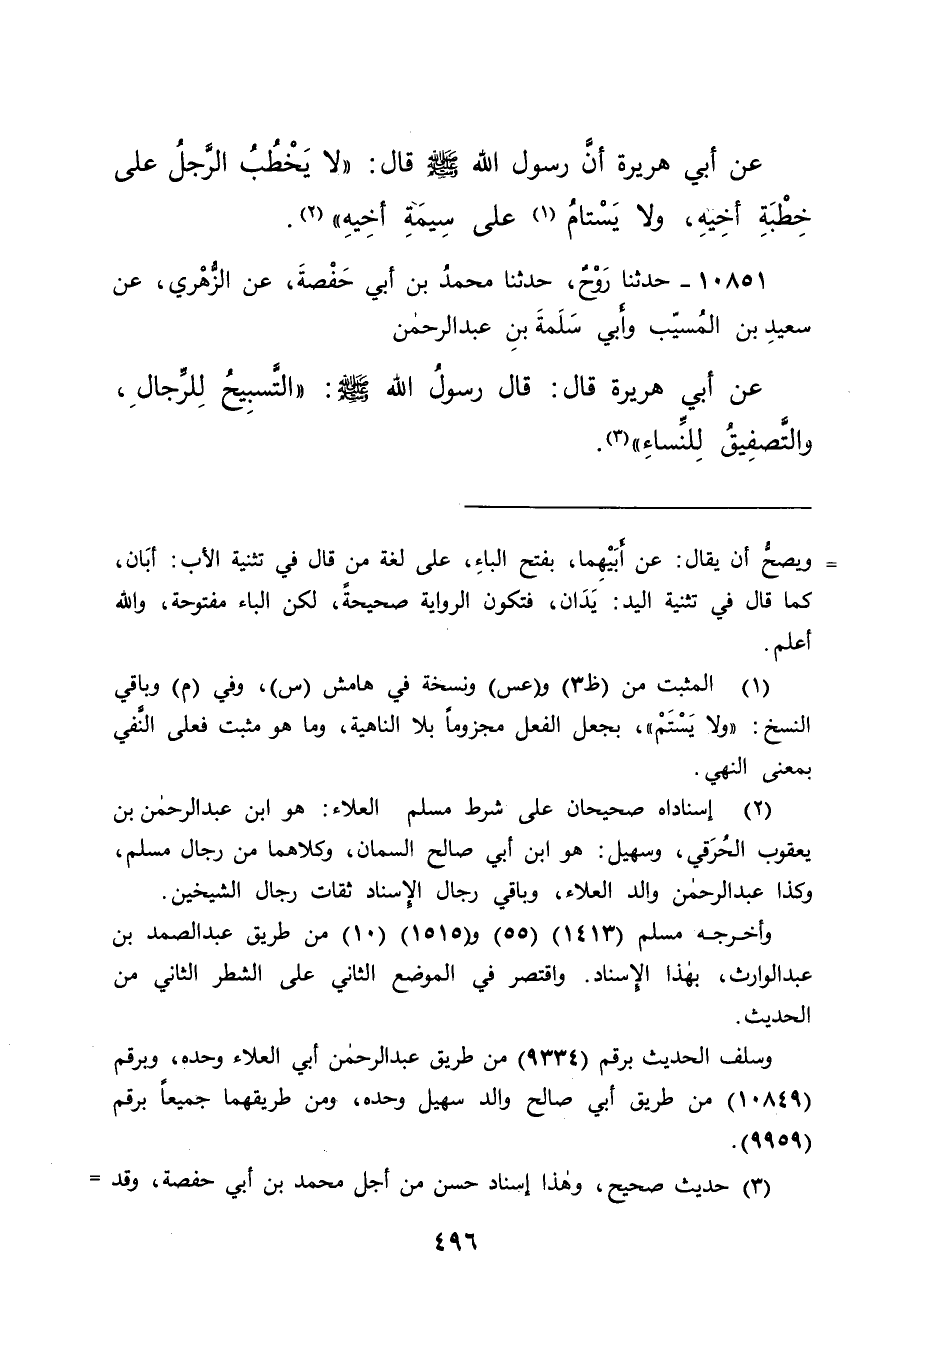 عن أبي هريرة أنَّ رسول الله ﷺ قال: «لا يَخْطُبُ الرَّجلُ على
خِطْبَةِ أخيهِ، ولا يَسْتامُ (١) على سِيمَةِ أخيهِ» (٢).
١٠٨٥١ - حدثنا رَوْحٌ، حدثنا محمدُ بن أبي حَفْصةَ، عن الزُّهْري، عن
سعيدِ بن المُسيّب وأَبي سَلَمةَ بنِ عبدالرحمٰن
عن أبي هريرة قال: قال رسولُ الله ﷺ: «التَّسبِيحُ لِلرِّجالِ،
والتَّصفِيقُ لِلنِّساءِ»(٣).
= ويصحُّ أن يقال: عن أَبَيْهِما، بفتح الباءِ، على لغة من قال في تثنية الأب: أبَان،
كما قال في تثنية اليد: يَدَان، فتكون الرواية صحيحةً، لكن الباء مفتوحة، والله
أعلم.
(١) المثبت من (ظ٣) و(عس) ونسخة في هامش (س)، وفي (م) وباقي
النسخ: «ولا يَسْتَمْ»، بجعل الفعل مجزوماً بلا الناهية، وما هو مثبت فعلى النَّفي
بمعنى النهي.
(٢) إسناداه صحيحان على شرط مسلم العلاء: هو ابن عبدالرحمٰن بن
يعقوب الحُرَقي، وسهيل: هو ابن أبي صالح السمان، وكلاهما من رجال مسلم،
وكذا عبدالرحمٰن والد العلاء، وباقي رجال الإسناد ثقات رجال الشيخين.
وأخرجه مسلم (١٤١٣) (٥٥) و(١٥١٥) (١٠) من طريق عبدالصمد بن
عبدالوارث، بهٰذا الإسناد. واقتصر في الموضع الثاني على الشطر الثاني من
الحديث.
وسلف الحديث برقم (٩٣٣٤) من طريق عبدالرحمٰن أبي العلاء وحده، وبرقم
(١٠٨٤٩) من طريق أبي صالح والد سهيل وحده، ومن طريقهما جميعاً برقم
(٩٩٥٩).
(٣) حديث صحيح، وهٰذا إسناد حسن من أجل محمد بن أبي حفصة، وقد =
٤٩٦